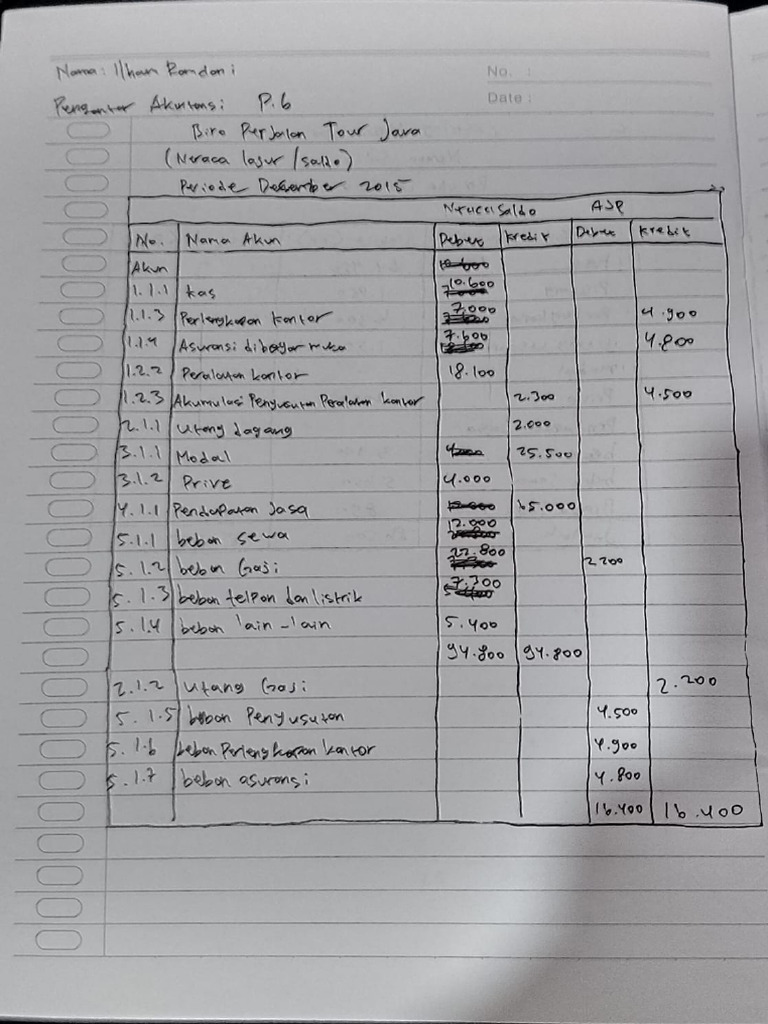 Nama: Ilhan Romdoni
No. :
Pengantar Akuntansi P.6
Date :
Biro Perjalan Tour Java
(Neraca lajur / saldo)
Periode Desember 2015
Neraca Saldo AJP
No. Nama Akun Debet Kredit Debet Kredit
Akun
1.1.1 kas 10.600
1.1.3 Perlengkapan kantor 7.000 4.900
1.1.4 Asuransi dibayar muka 7.600 4.800
1.2.2 Peralatan kantor 18.100
1.2.3 Akumulasi Penyusutan Peralatan kantor 2.300 4.500
2.1.1 Utang dagang 2.000
3.1.1 Modal 25.500
3.1.2 Prive 4.000
4.1.1 Pendapatan Jasa 65.000
5.1.1 beban sewa 12.000
5.1.2 beban Gaji 22.800 2.200
5.1.3 beban telpon dan listrik 7.300
5.1.4 beban lain-lain 5.400
94.800 94.800
2.1.2 Utang Gaji 2.200
5.1.5 beban Penyusutan 4.500
5.1.6 beban Perlengkapan kantor 4.900
5.1.7 beban asuransi 4.800
16.400 16.400